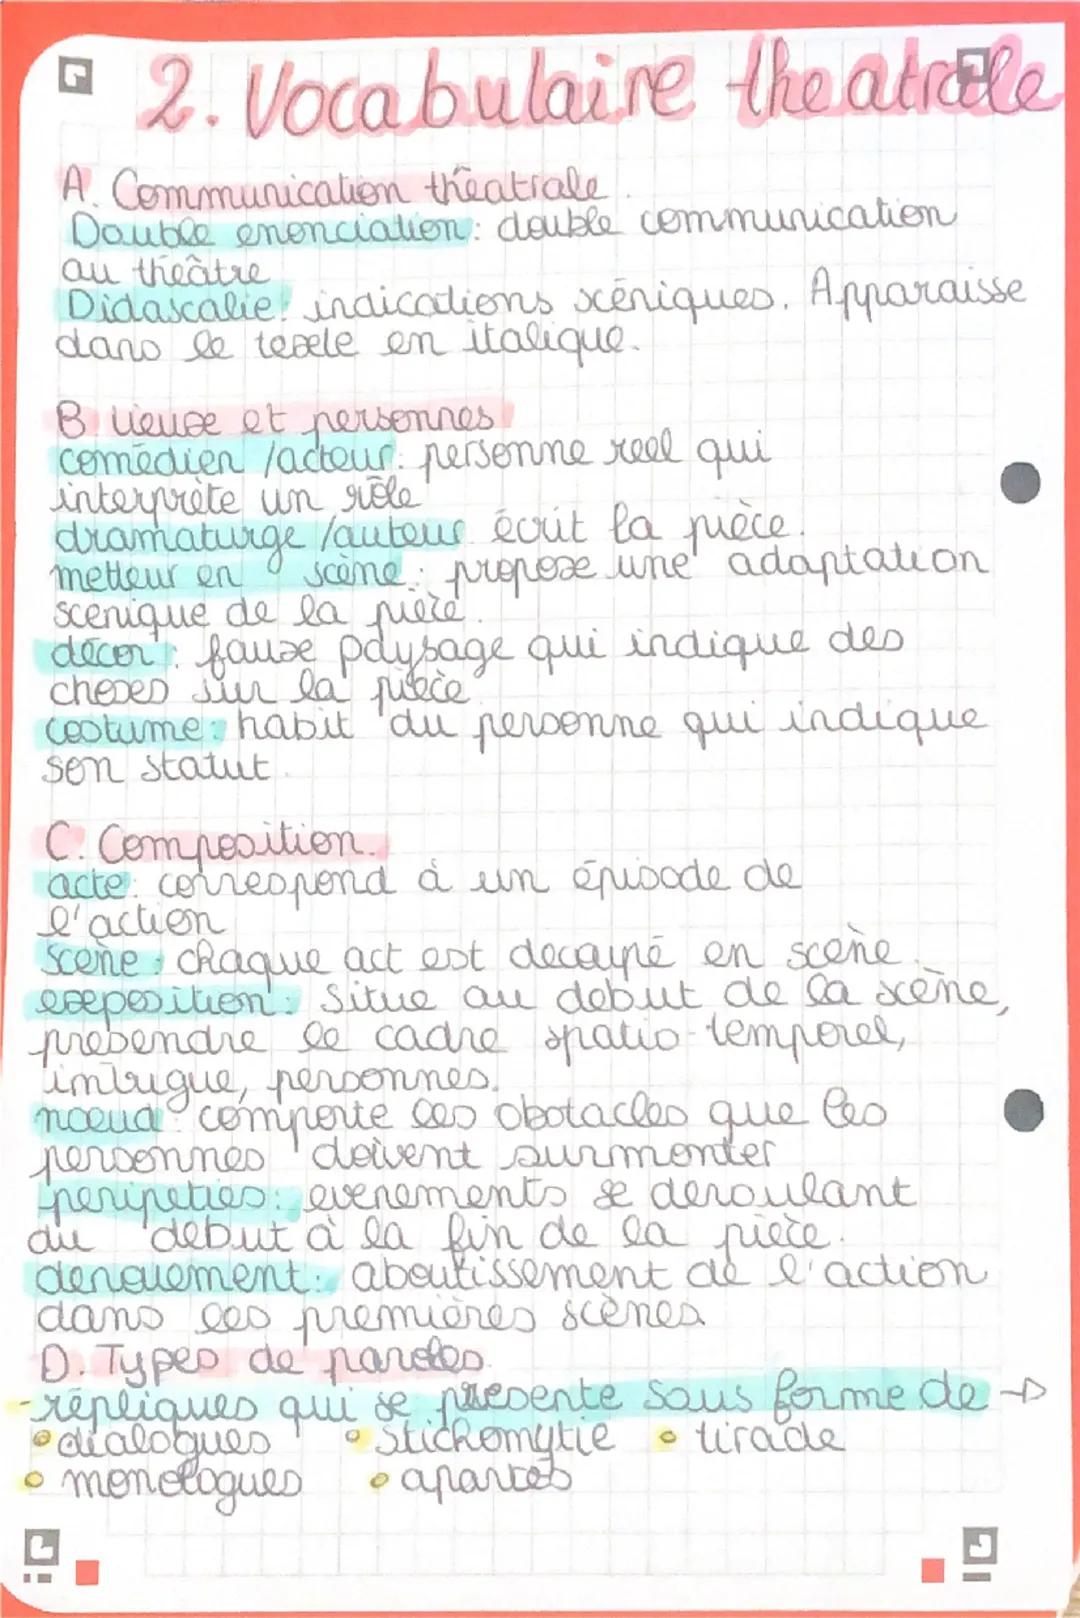 2. Vocabulaire theatrale
A. Communication théatrale
Double enonciation : double communication
au théâtre
Didascalie : indications scéniques. Apparaisse
dans le texte en italique.
B lieux et personnes
comédien /acteur : personne reel qui
interprète un rôle
dramaturge /auteur écrit la pièce.
metteur en scène : propose une adaptation
scenique de la pièce.
décor : faux paysage qui indique des
choses sur la pièce
costume : habit du personne qui indique
son statut.
C. Composition.
acte : correspond à un épisode de
l'action
scène : chaque act est decoupé en scène.
exposition : situe au debut de la scène,
presendre le cadre spatio-temporel,
intrigue, personnes.
nœud : comporte les obstacles que les
personnes doivent surmonter
peripeties : evenements se deroulant
du debut à la fin de la pièce.
denouement : aboutissement de l'action
dans les premières scènes
D. Types de paroles.
-répliques qui se presente sous forme de →
• dialogues • stichomytie • tirade
• monologues • apartés